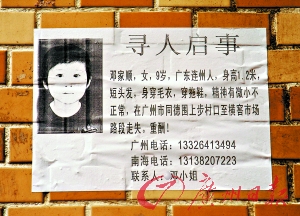 寻人启事
邓家顺，女，9岁，广东连州人，身高1.2米，
短头发，身穿毛衣，穿拖鞋，精神有微小不
正常，在广州市同德围上步村口至横窖市场
路段走失，重酬！
广州电话：13326413494
南海电话：13138207223
联系人：邓小姐
广州日报